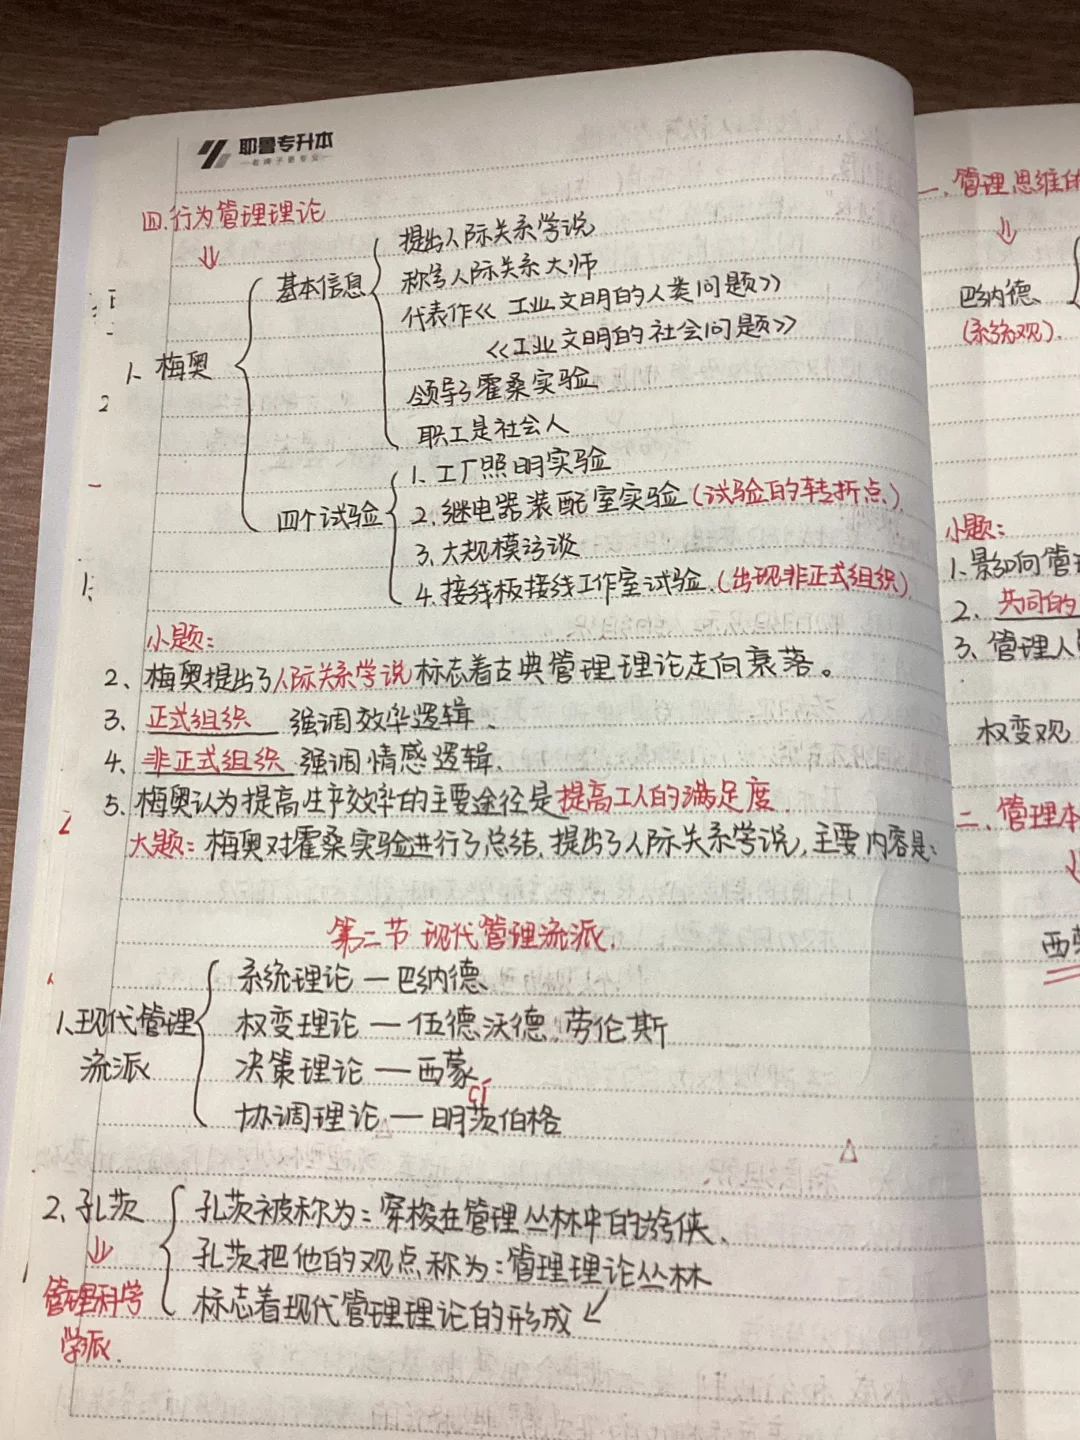 耶鲁专升本
四.行为管理理论
1. 梅奥
基本信息
提出人际关系学说
称号人际关系大师
代表作《工业文明的人类问题》
《工业文明的社会问题》
领导了霍桑实验
职工是社会人
四个试验
1.工厂照明实验
2.继电器装配室实验(试验的转折点)
3.大规模访谈
4.接线板接线工作室试验.(出现非正式组织)
小题:
2、梅奥提出了人际关系学说标志着古典管理理论走向衰落。
3、正式组织 强调效率逻辑.
4、非正式组织 强调情感逻辑.
5、梅奥认为提高生产效率的主要途径是提高工人的满足度.
大题:梅奥对霍桑实验进行了总结,提出了人际关系学说,主要内容是:
第二节 现代管理流派.
1.现代管理
流派
系统理论—巴纳德
权变理论—伍德沃德.劳伦斯
决策理论—西蒙
cí
协调理论—明茨伯格
2、孔茨
管理科学
学派.
孔茨被称为:穿梭在管理丛林中的游侠.
孔茨把他的观点称为:管理理论丛林
标志着现代管理理论的形成
一.管理思维的
巴纳德
(系统观).
小题:
1.影响管理
2、共同的
3、管理人
权变观
二、管理本
西蒙